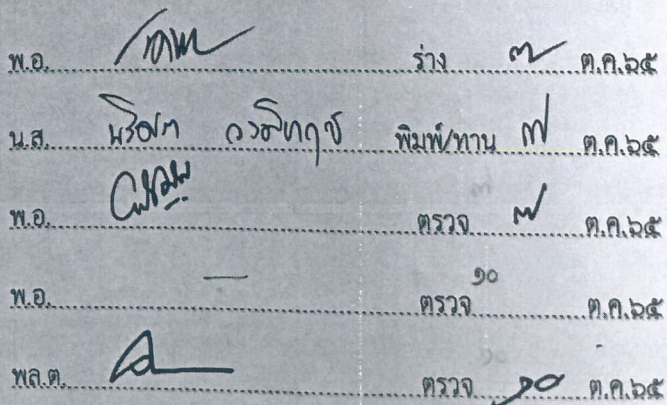 พ.อ. ร่าง ๗ ต.ค.๖๕
น.ส. พิมพ์/ทาน ๗ ต.ค.๖๕
พ.อ. ตรวจ ๗ ต.ค.๖๕
พ.อ. — ตรวจ ๑๐ ต.ค.๖๕
พล.ต. ตรวจ ๑๐ ต.ค.๖๕